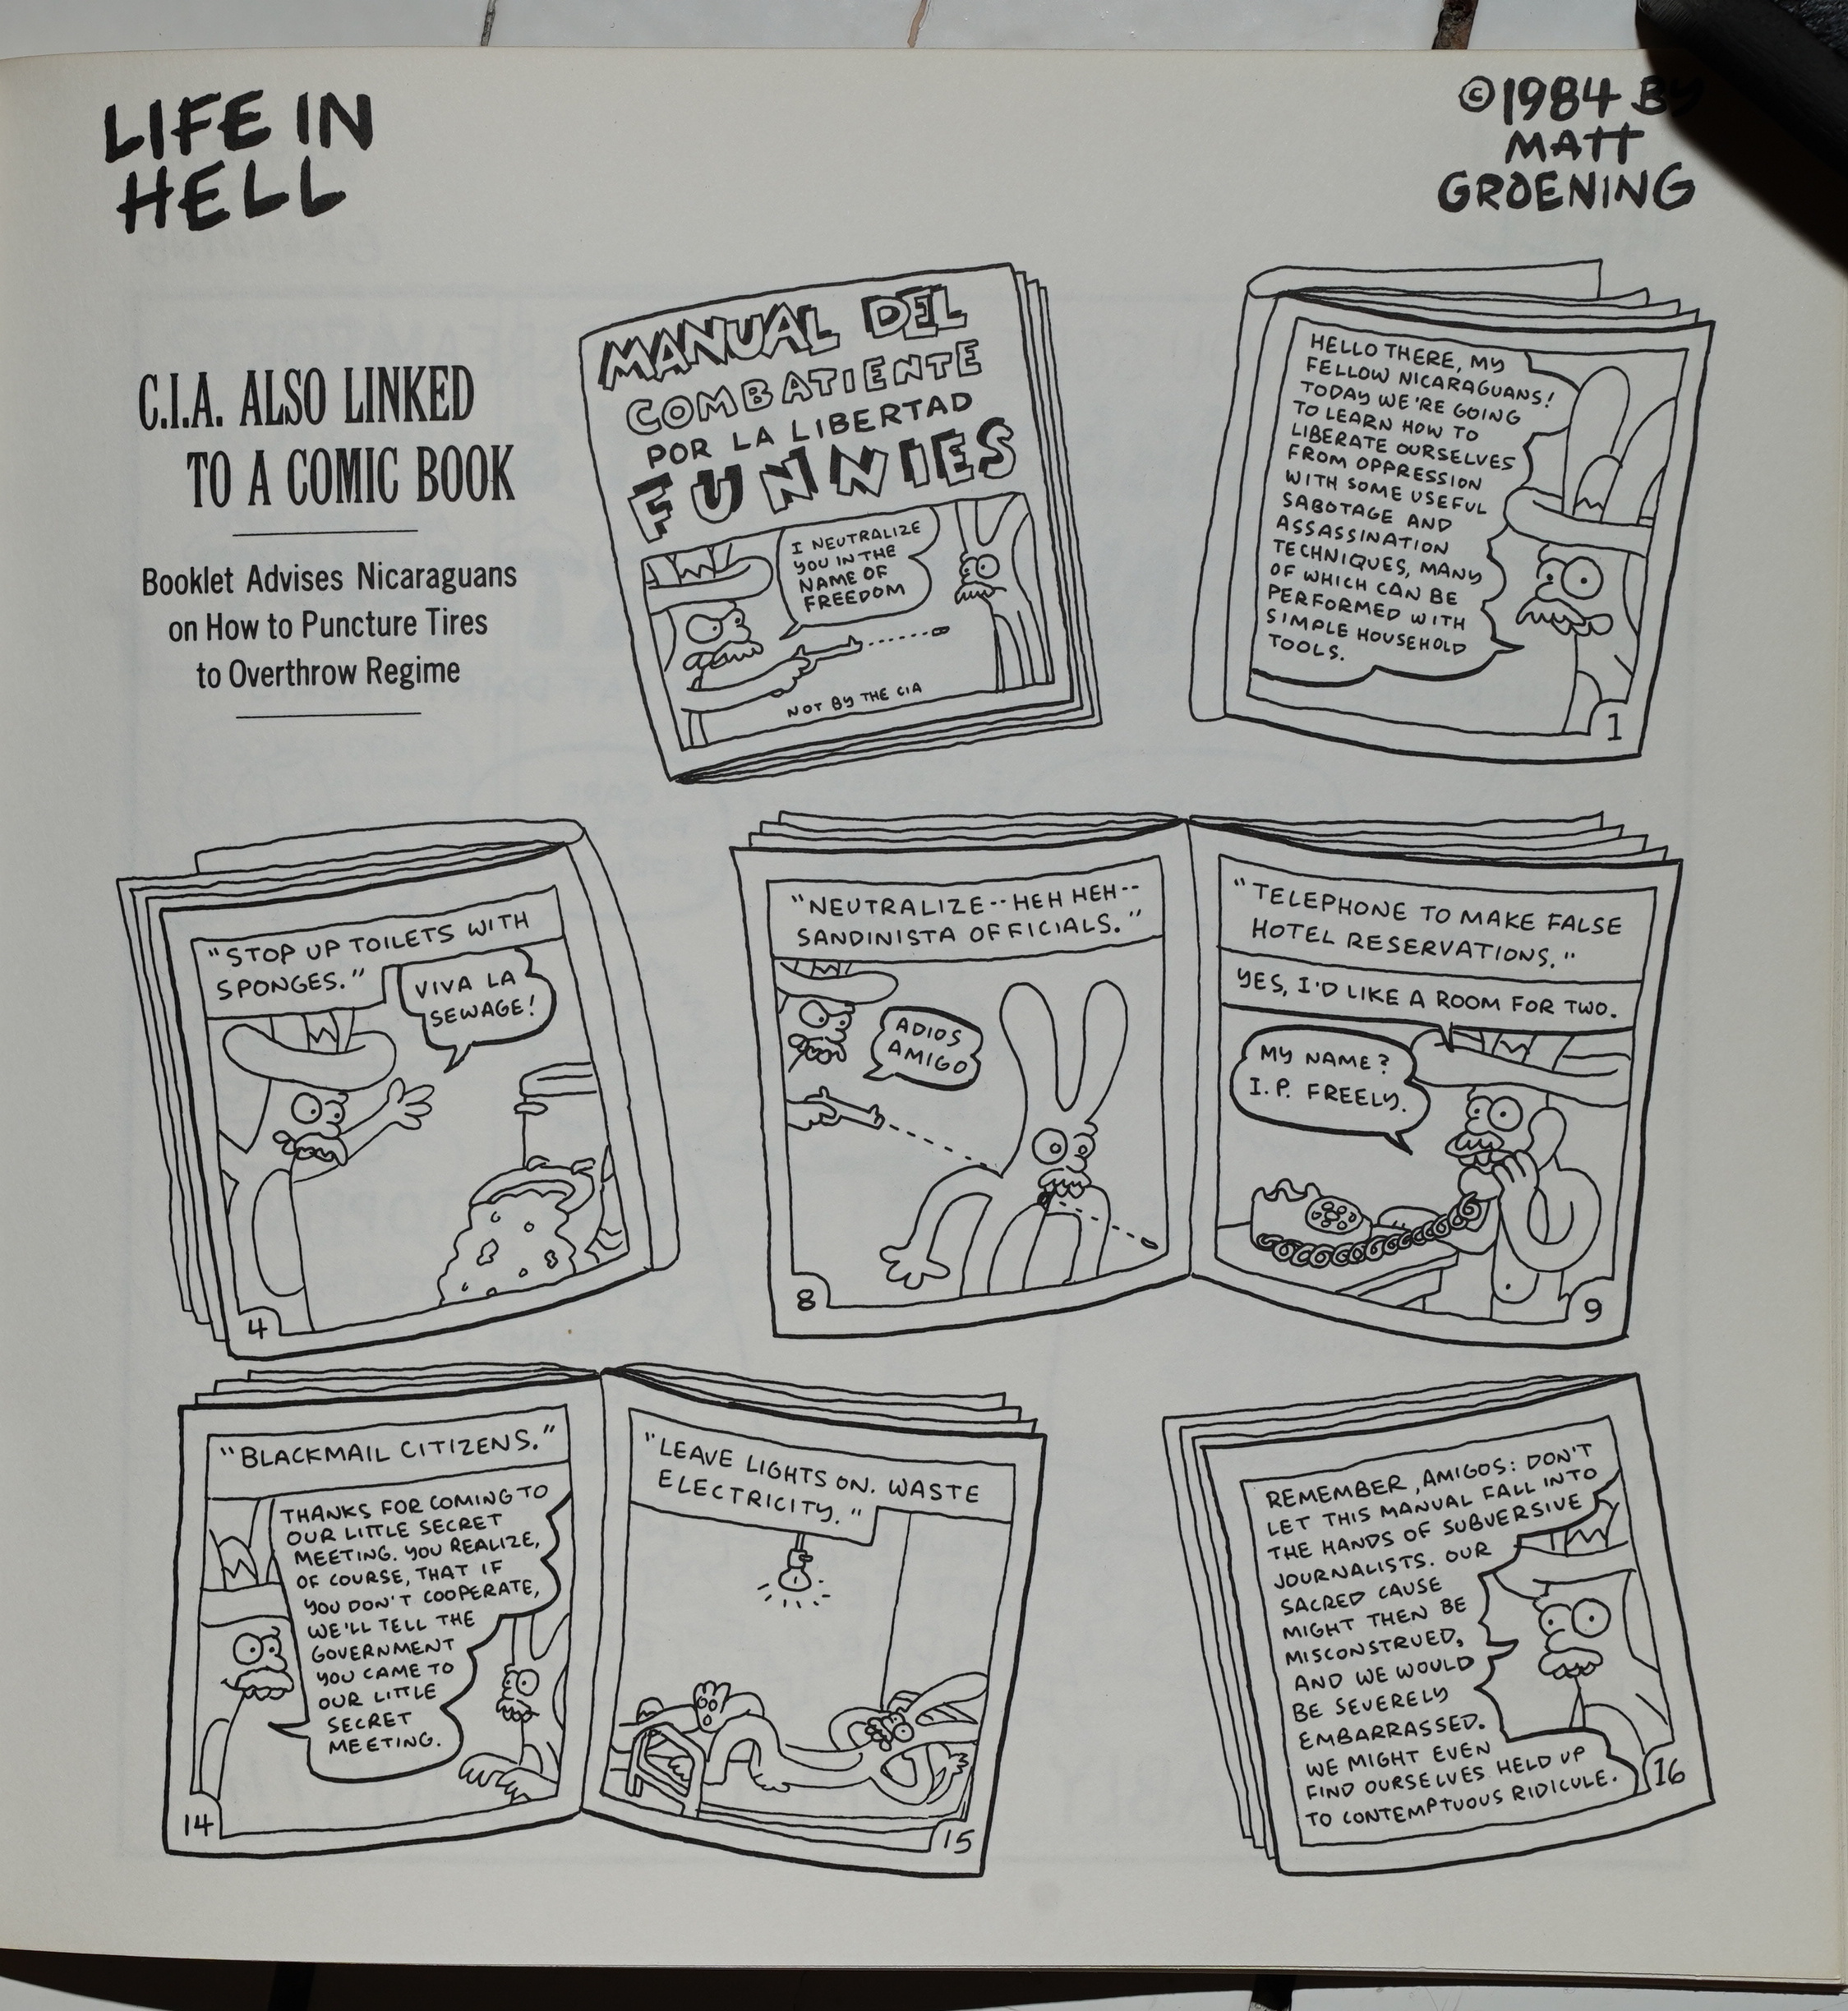 LIFE IN
HELL
©1984 BY
MATT
GROENING
C.I.A. ALSO LINKED
TO A COMIC BOOK
Booklet Advises Nicaraguans
on How to Puncture Tires
to Overthrow Regime
MANUAL DEL
COMBATIENTE
POR LA LIBERTAD
FUNNIES
I NEUTRALIZE
YOU IN THE
NAME OF
FREEDOM
NOT BY THE CIA
HELLO THERE, MY
FELLOW NICARAGUANS!
TODAY WE'RE GOING
TO LEARN HOW TO
LIBERATE OURSELVES
FROM OPPRESSION
WITH SOME USEFUL
SABOTAGE AND
ASSASSINATION
TECHNIQUES, MANY
OF WHICH CAN BE
PERFORMED WITH
SIMPLE HOUSEHOLD
TOOLS.
1
"STOP UP TOILETS WITH
SPONGES."
VIVA LA
SEWAGE!
4
"NEUTRALIZE--HEH HEH--
SANDINISTA OFFICIALS."
ADIOS
AMIGO
8
"TELEPHONE TO MAKE FALSE
HOTEL RESERVATIONS."
YES, I'D LIKE A ROOM FOR TWO.
MY NAME?
I.P. FREELY.
9
"BLACKMAIL CITIZENS."
THANKS FOR COMING TO
OUR LITTLE SECRET
MEETING. YOU REALIZE,
OF COURSE, THAT IF
YOU DON'T COOPERATE,
WE'LL TELL THE
GOVERNMENT
YOU CAME TO
OUR LITTLE
SECRET
MEETING.
14
"LEAVE LIGHTS ON. WASTE
ELECTRICITY."
15
REMEMBER, AMIGOS: DON'T
LET THIS MANUAL FALL INTO
THE HANDS OF SUBVERSIVE
JOURNALISTS. OUR
SACRED CAUSE
MIGHT THEN BE
MISCONSTRUED,
AND WE WOULD
BE SEVERELY
EMBARRASSED.
WE MIGHT EVEN
FIND OURSELVES HELD UP
TO CONTEMPTUOUS RIDICULE.
16